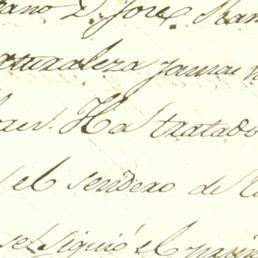 rano D. José Ram
aturaleza jamas
Ha tratado
el sendero de
siguió el